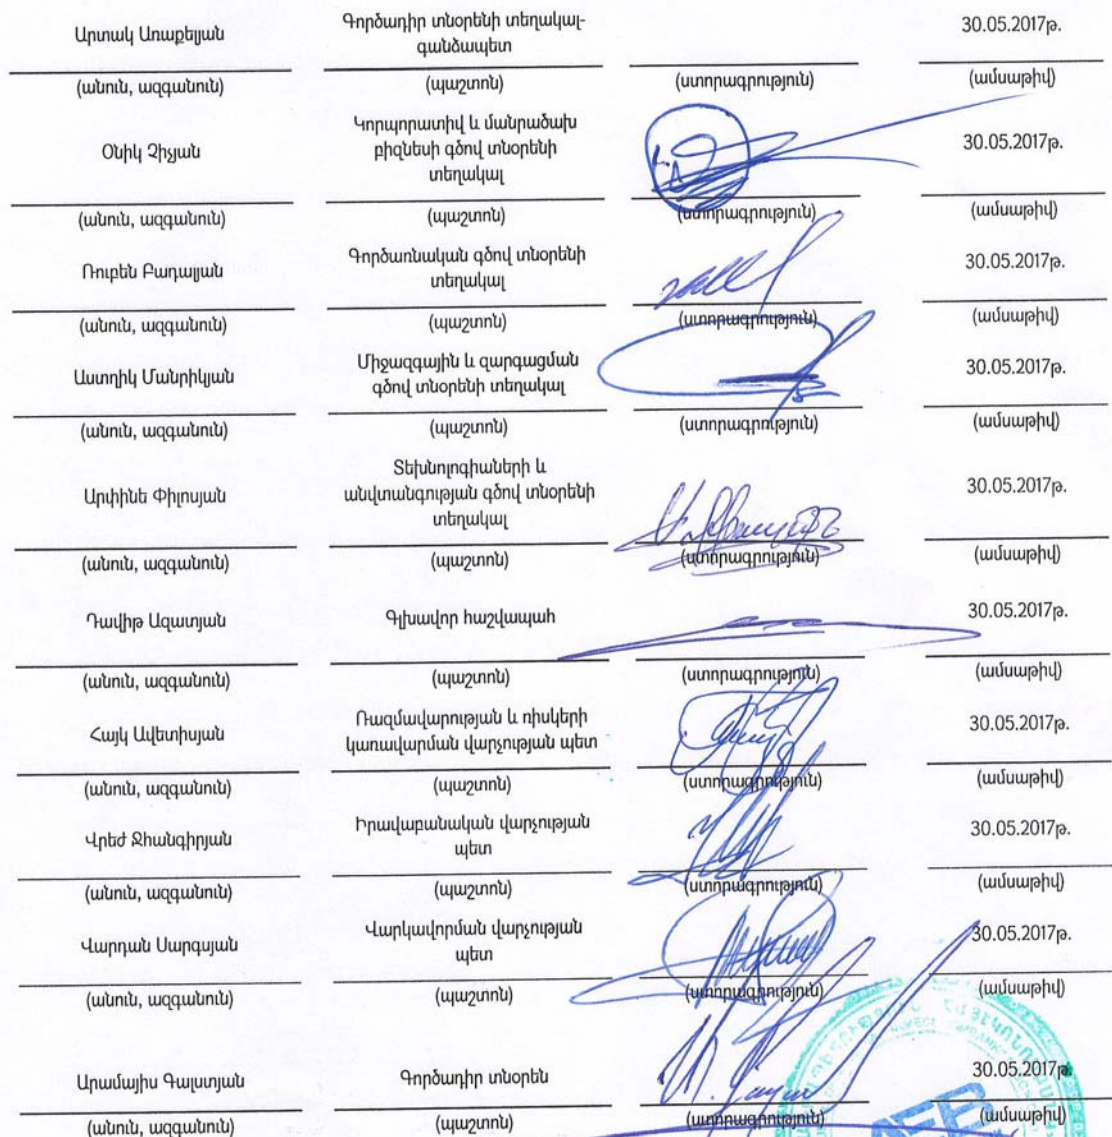 Արտակ Առաքելյան Գործադիր տնօրենի տեղակալ- 30.05.2017թ.
գանձապետ
(անուն, ազգանուն) (պաշտոն) (ստորագրություն) (ամսաթիվ)
Օնիկ Չիչյան Կորպորատիվ և մանրածախ 30.05.2017թ.
բիզնեսի գծով տնօրենի
տեղակալ
(անուն, ազգանուն) (պաշտոն) (ստորագրություն) (ամսաթիվ)
Ռուբեն Բադալյան Գործառնական գծով տնօրենի 30.05.2017թ.
տեղակալ
(անուն, ազգանուն) (պաշտոն) (ստորագրություն) (ամսաթիվ)
Աստղիկ Մանրիկյան Միջազգային և զարգացման 30.05.2017թ.
գծով տնօրենի տեղակալ
(անուն, ազգանուն) (պաշտոն) (ստորագրություն) (ամսաթիվ)
Արփինե Փիլոսյան Տեխնոլոգիաների և 30.05.2017թ.
անվտանգության գծով տնօրենի
տեղակալ
(անուն, ազգանուն) (պաշտոն) (ստորագրություն) (ամսաթիվ)
Դավիթ Ազատյան Գլխավոր հաշվապահ 30.05.2017թ.
(անուն, ազգանուն) (պաշտոն) (ստորագրություն) (ամսաթիվ)
Հայկ Ավետիսյան Ռազմավարության և ռիսկերի 30.05.2017թ.
կառավարման վարչության պետ
(անուն, ազգանուն) (պաշտոն) (ստորագրություն) (ամսաթիվ)
Վրեժ Ջհանգիրյան Իրավաբանական վարչության 30.05.2017թ.
պետ
(անուն, ազգանուն) (պաշտոն) (ստորագրություն) (ամսաթիվ)
Վարդան Սարգսյան Վարկավորման վարչության 30.05.2017թ.
պետ
(անուն, ազգանուն) (պաշտոն) (ստորագրություն) (ամսաթիվ)
Արամայիս Գալստյան Գործադիր տնօրեն 30.05.2017թ.
(անուն, ազգանուն) (պաշտոն) (ստորագրություն) (ամսաթիվ)
AEB